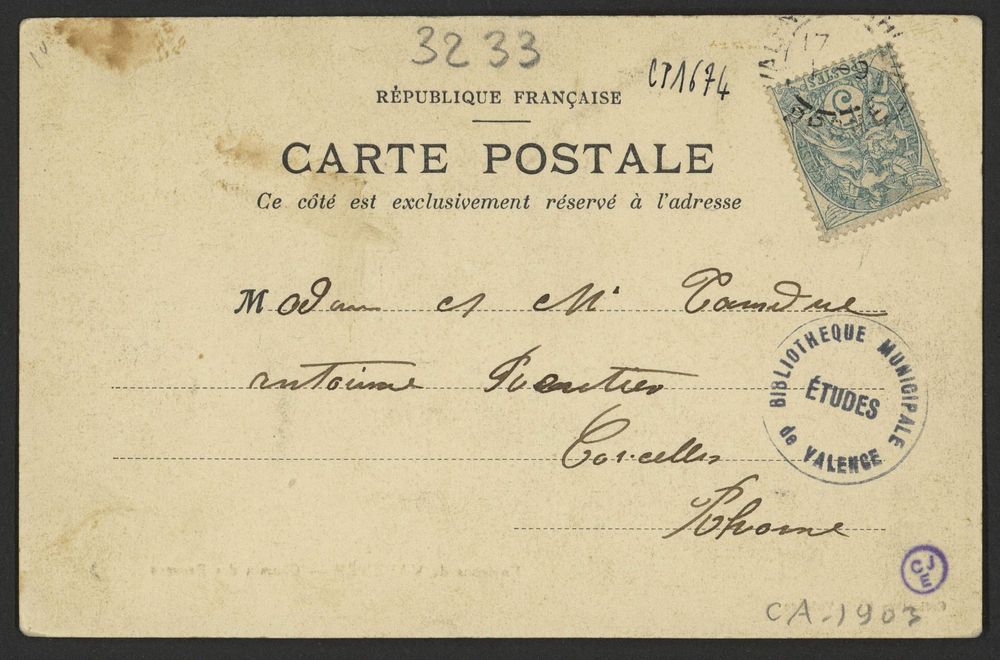 3233
CP1674
RÉPUBLIQUE FRANÇAISE
CARTE POSTALE
Ce côté est exclusivement réservé à l'adresse
POSTES
5
17
Madame et Mr
antoine Rentier
Corcelles
Rhone
BIBLIOTHEQUE MUNICIPALE
ÉTUDES
de VALENCE
CJE
CA-1903